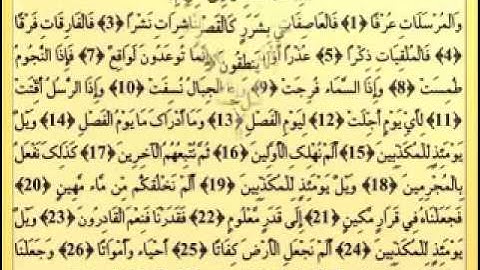 وَالْمُرْسَلَاتِ عُرْفًا ﴿1﴾ فَالْعَاصِفَاتِ بِشَرَرٍ كَالْقَصْرِ النَّاشِرَاتِ نَشْرًا ﴿3﴾ فَالْفَارِقَاتِ فَرْقًا
﴿4﴾ فَالْمُلْقِيَاتِ ذِكْرًا ﴿5﴾ عُذْرًا أَوْ يَنْطِقُونَ إِنَّمَا تُوعَدُونَ لَوَاقِعٌ ﴿7﴾ فَإِذَا النُّجُومُ
طُمِسَتْ ﴿8﴾ وَإِذَا السَّمَاءُ فُرِجَتْ ﴿9﴾ الْجِبَالُ نُسِفَتْ ﴿10﴾ وَإِذَا الرُّسُلُ أُقِّتَتْ
﴿11﴾ لِأَيِّ يَوْمٍ أُجِّلَتْ ﴿12﴾ لِيَوْمِ الْفَصْلِ ﴿13﴾ وَمَا أَدْرَاكَ مَا يَوْمُ الْفَصْلِ ﴿14﴾ وَيْلٌ
يَوْمَئِذٍ لِلْمُكَذِّبِينَ ﴿15﴾ أَلَمْ نُهْلِكِ الْأَوَّلِينَ ﴿16﴾ ثُمَّ نُتْبِعُهُمُ الْآخِرِينَ ﴿17﴾ كَذَلِكَ نَفْعَلُ
بِالْمُجْرِمِينَ ﴿18﴾ وَيْلٌ يَوْمَئِذٍ لِلْمُكَذِّبِينَ ﴿19﴾ أَلَمْ نَخْلُقْكُمْ مِنْ مَاءٍ مَهِينٍ ﴿20﴾
فَجَعَلْنَاهُ فِي قَرَارٍ مَكِينٍ ﴿21﴾ إِلَى قَدَرٍ مَعْلُومٍ ﴿22﴾ فَقَدَرْنَا فَنِعْمَ الْقَادِرُونَ ﴿23﴾ وَيْلٌ
يَوْمَئِذٍ لِلْمُكَذِّبِينَ ﴿24﴾ أَلَمْ نَجْعَلِ الْأَرْضَ كِفَاتًا ﴿25﴾ أَحْيَاءً وَأَمْوَاتًا ﴿26﴾ وَجَعَلْنَا